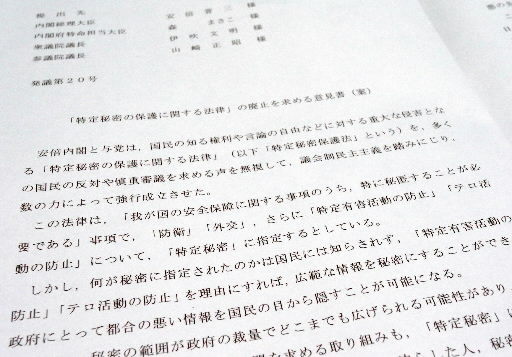 提出先
内閣総理大臣 安倍晋三 様
内閣府特命担当大臣 森 まさこ 様
衆議院議長 伊吹文明 様
参議院議長 山崎正昭 様
発議第20号
「特定秘密の保護に関する法律」の廃止を求める意見書(案)
安倍内閣と与党は、国民の知る権利や言論の自由などに対する重大な侵害とな
る「特定秘密の保護に関する法律」(以下「特定秘密保護法」という)を、多く
の国民の反対や慎重審議を求める声を無視して、議会制民主主義を踏みにじり、
数の力によって強行成立させた。
この法律は、「我が国の安全保障に関する事項のうち、特に秘匿することが必
要である」事項で、「防衛」「外交」、さらに「特定有害活動の防止」「テロ活
動の防止」について、「特定秘密」に指定するとしている。
しかし、何が秘密に指定されたのかは国民には知らされず、「特定有害活動の
防止」「テロ活動の防止」を理由にすれば、広範な情報を秘密にすることができ
政府にとって都合の悪い情報を国民の目から隠すことが可能になる。
秘密の範囲が政府の裁量でどこまでも広げられる可能性があり
を求める取り組みも、「特定秘密」に
した人、秘密